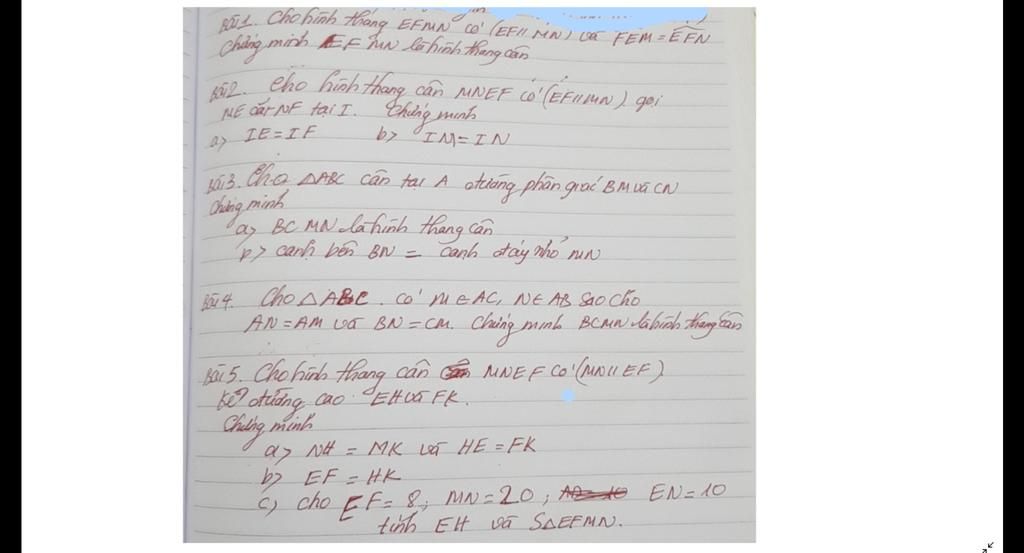 Bài 1. Cho hình thang EFMN có (EF // MN) và FEM = EFN
Chứng minh EFMN là hình thang cân
Bài 2. Cho hình thang cân MNEF có (EF // MN) gọi
ME cắt NF tại I. Chứng minh
a> IE = IF b> IM = IN
Bài 3. Cho △ABC cân tại A đường phân giác BM và CN
Chứng minh
a> BCMN là hình thang cân
b> cạnh bên BN = cạnh đáy nhỏ MN
Bài 4. Cho △ABC. có M ∈ AC, N ∈ AB sao cho
AN = AM và BN = CM. Chứng minh BCMN là hình thang cân
Bài 5. Cho hình thang cân MNEF có (MN // EF).
Kẻ đường cao EH và FK.
Chứng minh
a> NH = MK và HE = FK
b> EF = HK
c) cho EF = 8; MN = 20; EN = 10
tính EH và S△EFMN.